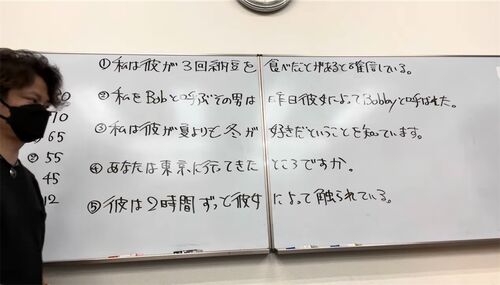 ① 私は彼が3回納豆を食べたことがあると確信している。
② 私をBobと呼ぶその男は昨日彼女によってBobbyと呼ばれた。
70
③ 私は彼が夏よりも冬が好きだということを知っています。
65
④ あなたは東京に行ってきたところですか。
② 55
45
⑤ 彼は2時間ずっと彼女によって触られている。
12